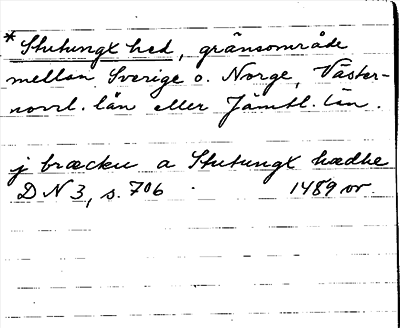 *Stutungx hed, gränsområde
mellan Sverige o. Norge, Väster-
norrl. län eller Jämtl. län.
j bræcku a Stutungx hædhe
DN 3, s. 706 1489 or.